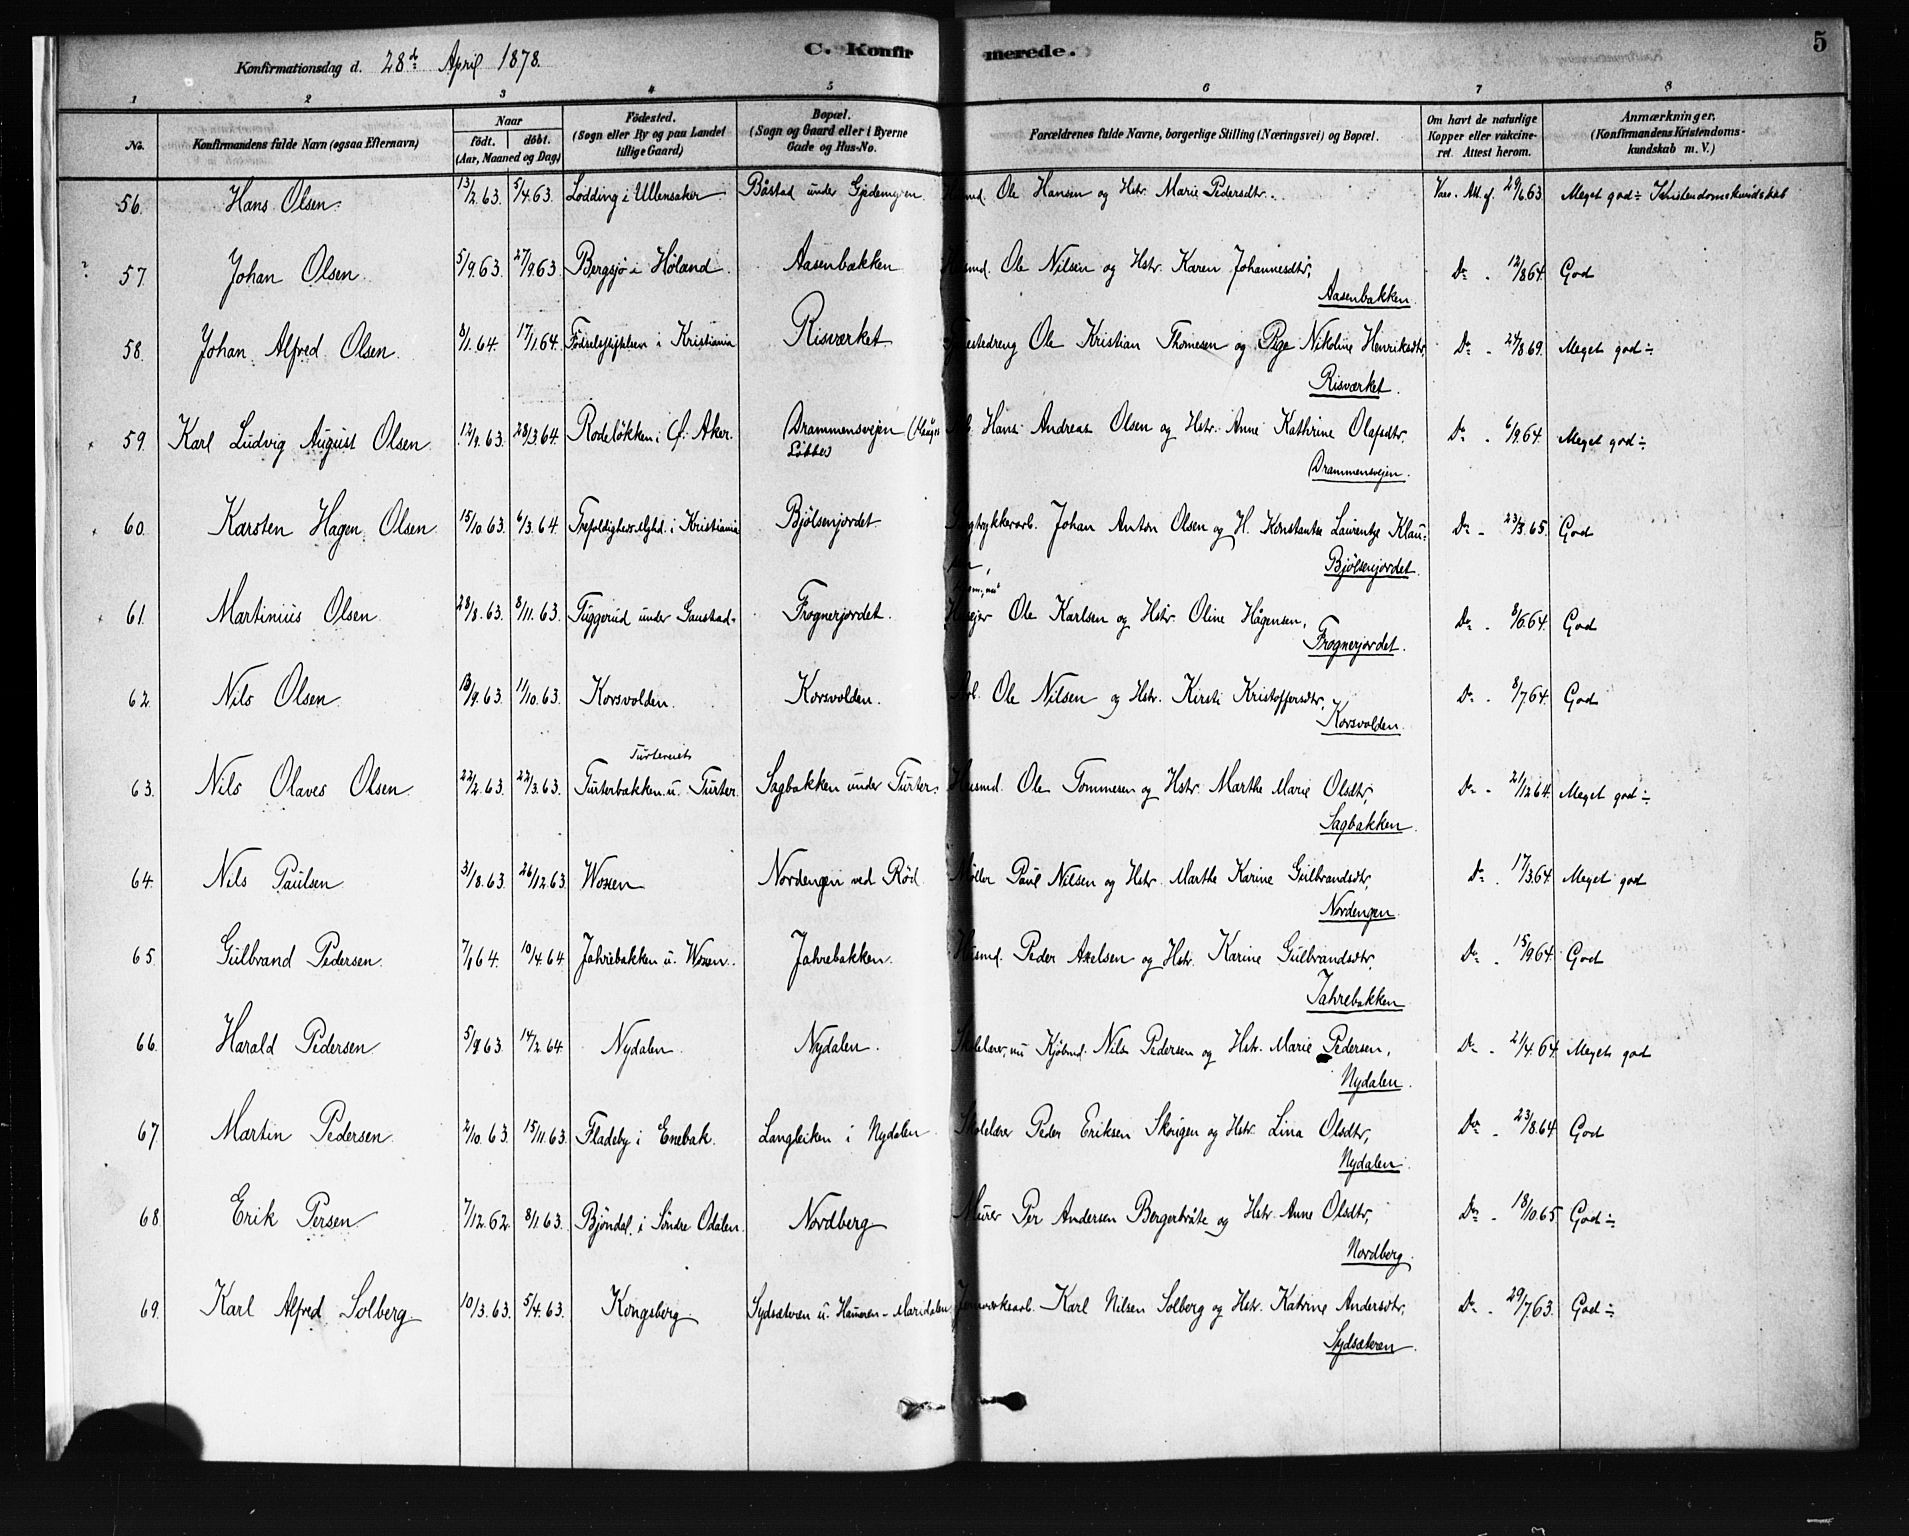 C. Konfirmerede. 5
Konfirmationsdag d. 28de April 1878.
1 2 3 4 5 6 7 8
No. Konfirmandens fulde Navn (ogsaa Efternavn) Naar født. døbt. (Aar, Maaned og Dag) Fødested. (Sogn eller By og paa Landet tillige Gaard) Bopæl. (Sogn og Gaard eller i Byerne Gade og Hus-No. Forældrenes fulde Navne, borgerlige Stilling (Næringsvei) og Bopæl. Om havt de naturlige Kopper eller vakcineret. Attest herom. Anmærkninger. (Konfirmandens Kristendomskundskab m. V.)
56. Hans Olsen 13/2.63. 5/4.63. Lødding i Ullensaker Båstad under Gjedemyren Husmd. Ole Hansen og Hstr. Marie Pedersdtr. Vacc. Att. af 29/6.63. Meget god ÷ Kristendomskundskab
57. Johan Olsen 5/9.63. 27/9.63 Bergsjø i Høland Aasenbakken Husmd. Ole Nilsen og Hstr. Karen Johannesdtr,
Aasenbakken. Do - 12/8.64. God
58. Johan Alfred Olsen 8/1.64. 17/1.64. Fødselsstiftelsen i Kristiania Risværket Tjenestedreng Ole Kristian Thomesen og Pige Nikoline Henriksdtr,
Risværket. Do - 24/8.69. Meget god ÷
59. Karl Ludvig August Olsen 12/9.63. 28/3.64. Rodeløkken i Ø. Aker. Drammensvejen Arb. Hans Andreas Olsen og Hstr. Anne Kathrine Olafsdtr.
Drammensvejen. Do - 6/9.64. Meget god ÷
60. Karsten Hagen Olsen 15/10.63. 6/3.64. Trefoldigheds Mghd. i Kristiania Bjølsenjordet Johan Anton Olsen og H. Konstantse Laurentze
Bjølsenjordet. Do - 23/3.65. God
61. Martinius Olsen 28/8.63. 8/11.63. Tuggerud under Gaustad Frognerjordet. Ole Karlsen og Hstr. Oline Hågensen,
Frognerjordet. Do - 8/6.64. God
62. Nils Olsen 13/9.63. 11/10.63. Korsvolden. Korsvolden. Arb. Ole Nilsen og Hstr. Kirsti Kristoffersdtr,
Korsvolden. Do - 8/7.64. God
63. Nils Olaves Olsen 22/2.63. 22/3.63. Turterbakken u. Turter. Sagbakken under Turter. Husmd. Ole Tommesen og Hstr. Marthe Marie Olsdtr,
Sagbakken. Do - 21/12.64. Meget god ÷
64. Nils Paulsen 3/8.63. 26/12.63. Woxen Nordengen ved Rød. Møller Paul Nilsen og Hstr. Marthe Karine Gulbrandsdtr,
Nordengen. Do - 17/3.64. Meget god
65. Gulbrand Pedersen 7/1.64. 10/4.64. Jahrebakken u. Woxen. Jahrebakken. Husmd. Peder Axelsen og Hstr. Karine Gulbrandsdtr,
Jahrebakken Do - 15/9.64. God
66. Harald Pedersen 5/9.63. 14/2.64. Nydalen. Nydalen. Skolelærer, nu Kjøbmd. Nils Pedersen og Hstr. Marie Pedersen,
Nydalen. Do - 21/4.64. Meget god
67. Martin Pedersen 2/10.63. 15/11.63. Fladeby i Enebak. Langleiken i Nydalen Skolelærer Peder Eriksen Skougen og Hstr. Lina Olsdtr,
Nydalen. Do - 23/8.64. God
68. Erik Persen 7/12.62. 8/1.63. Bjøndal i Søndre Odalen. Nordberg Murer Per Andersen Bergerbråte og Hstr. Anne Olsdtr,
Nordberg. Do - 18/10.65. God ÷
69. Karl Alfred Solberg 10/3.63. 5/4.63. Kongsberg Sydsæteren u. Hammeren - Maridalen Jernværksarb. Karl Nilsen Solberg og Hstr. Katrine Andersdtr,
Sydsæteren. Do - 29/7.63. God ÷